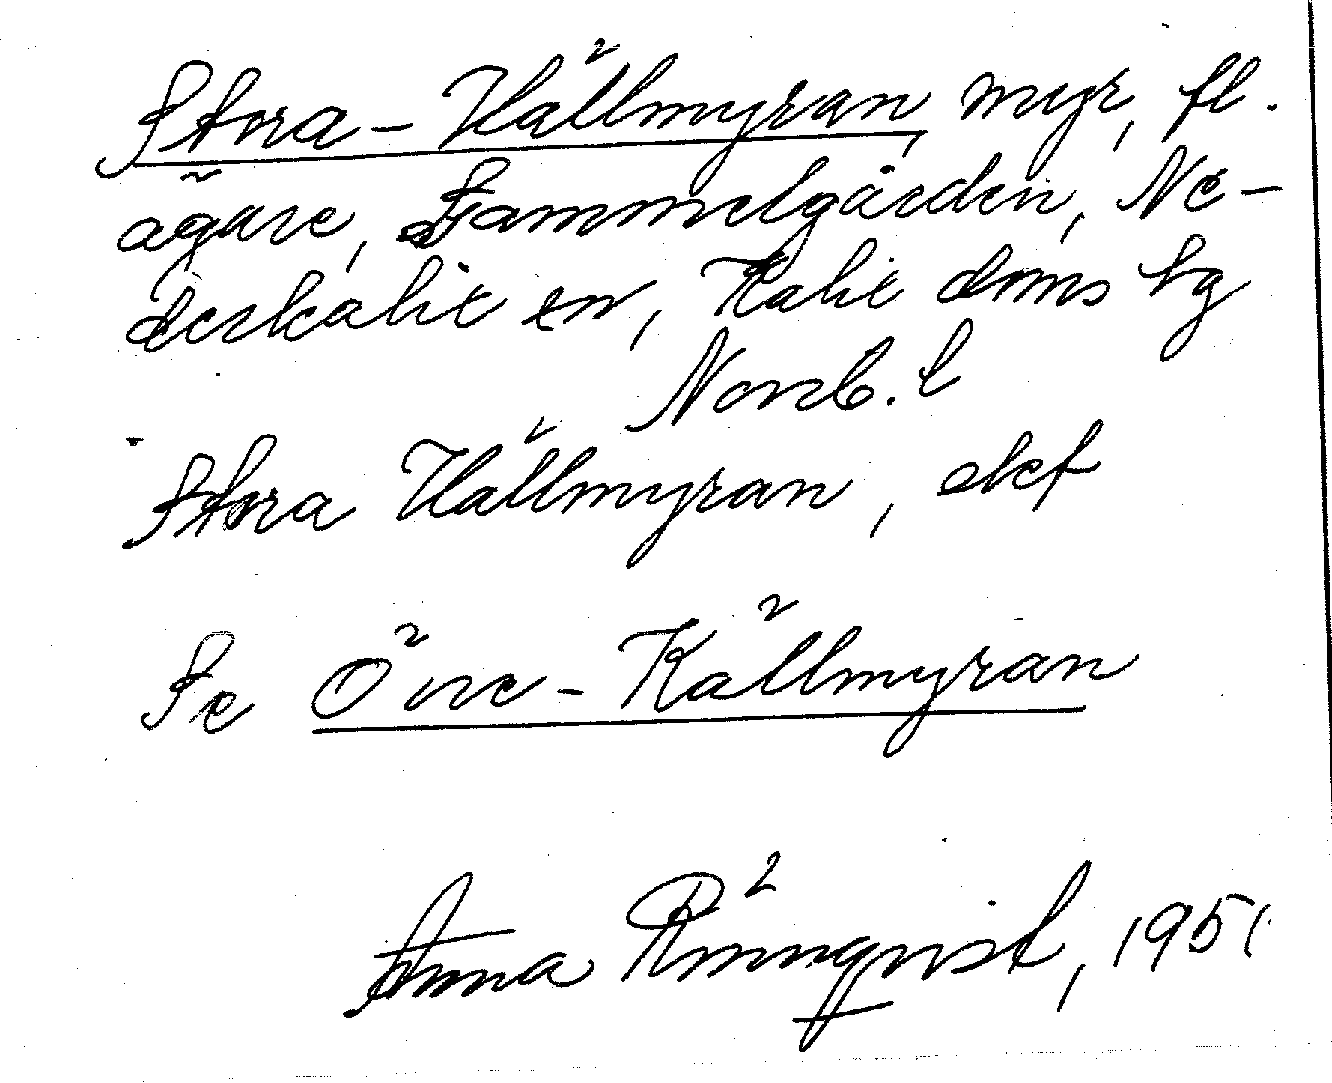 Stora-Källmyran, myr, fl.
ägare, Gammelgården, Ne-
derkalix sn, Kalix doms hg
Norrb. l
Stora Källmyran, ekt
Se Övre-Källmyran
Anna Rönnqvist, 1951